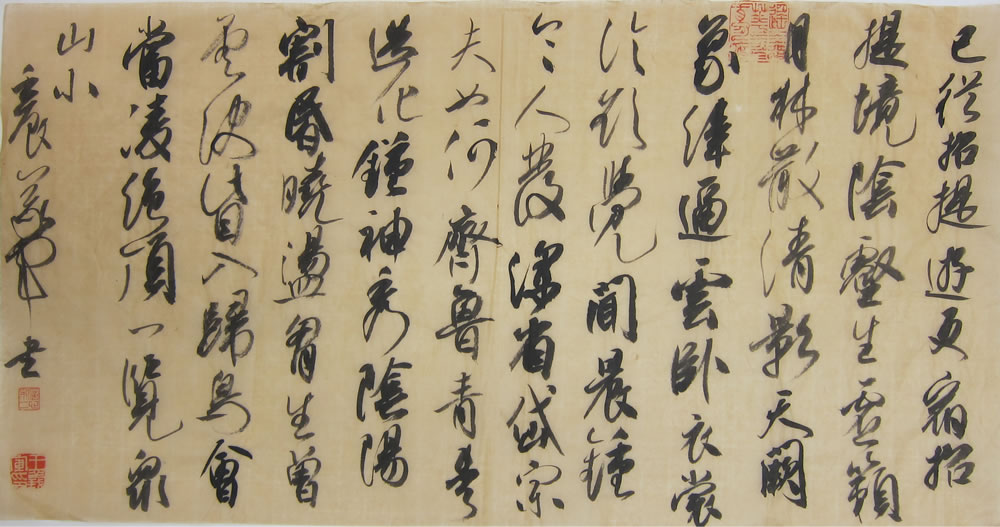 已從招提遊更宿招
提境陰壑生虛籟
月林散清影天闕
象緯逼雲臥衣裳
冷欲覺聞晨鍾
令人發深省岱宗
夫如何齊魯青未了
造化鍾神秀陰陽
割昏曉盪胸生曾
雲決眥入歸鳥會
當凌絕頂一覽眾
山小
義軍書